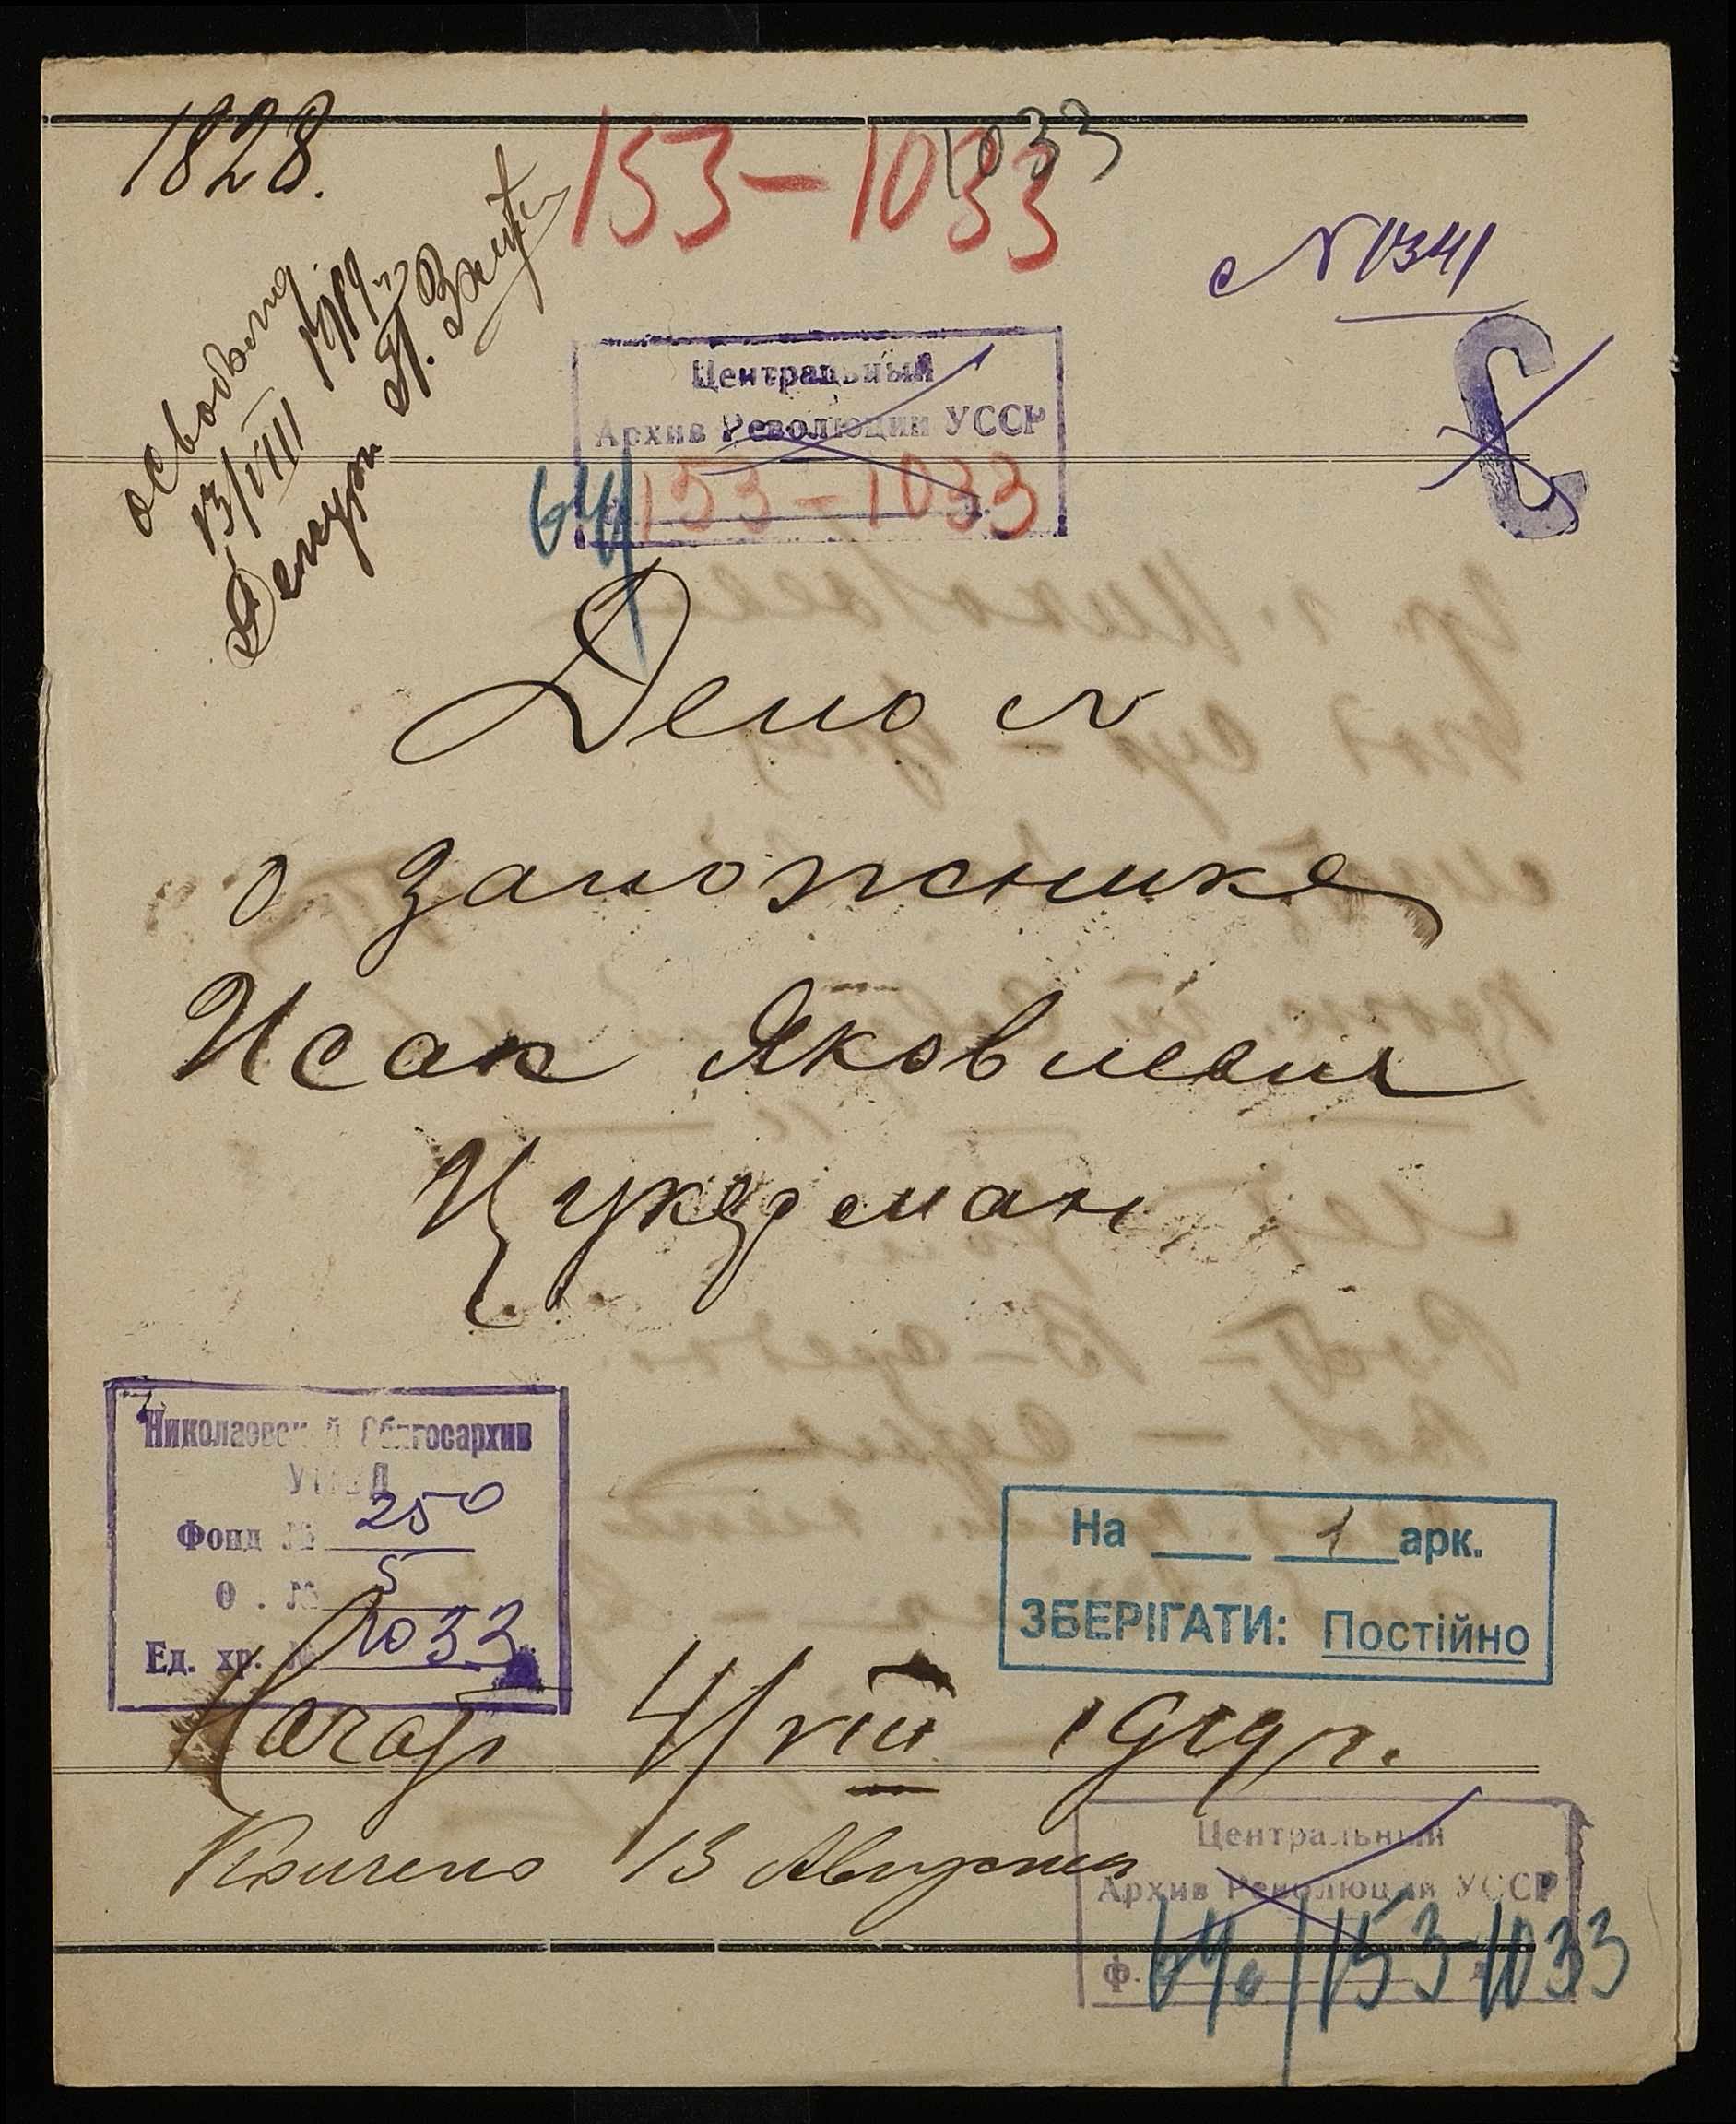 1828.
153-1033
1033
№ 1341
13/VIII 1919
Центральный
Архив Революции УССР
64/153-1033
Дело №
о заложнике
Исак Яковлевич
Цукерман
Николаевский Облгосархив
Фонд № 250
О . № 5
Ед. хр. № 1033
На 1 арк.
ЗБЕРІГАТИ: Постійно
Начато 4/VIII 1919 г.
Кончено 13 Августа
Центральный
Архив Революции УССР
ф. 64/153-1033